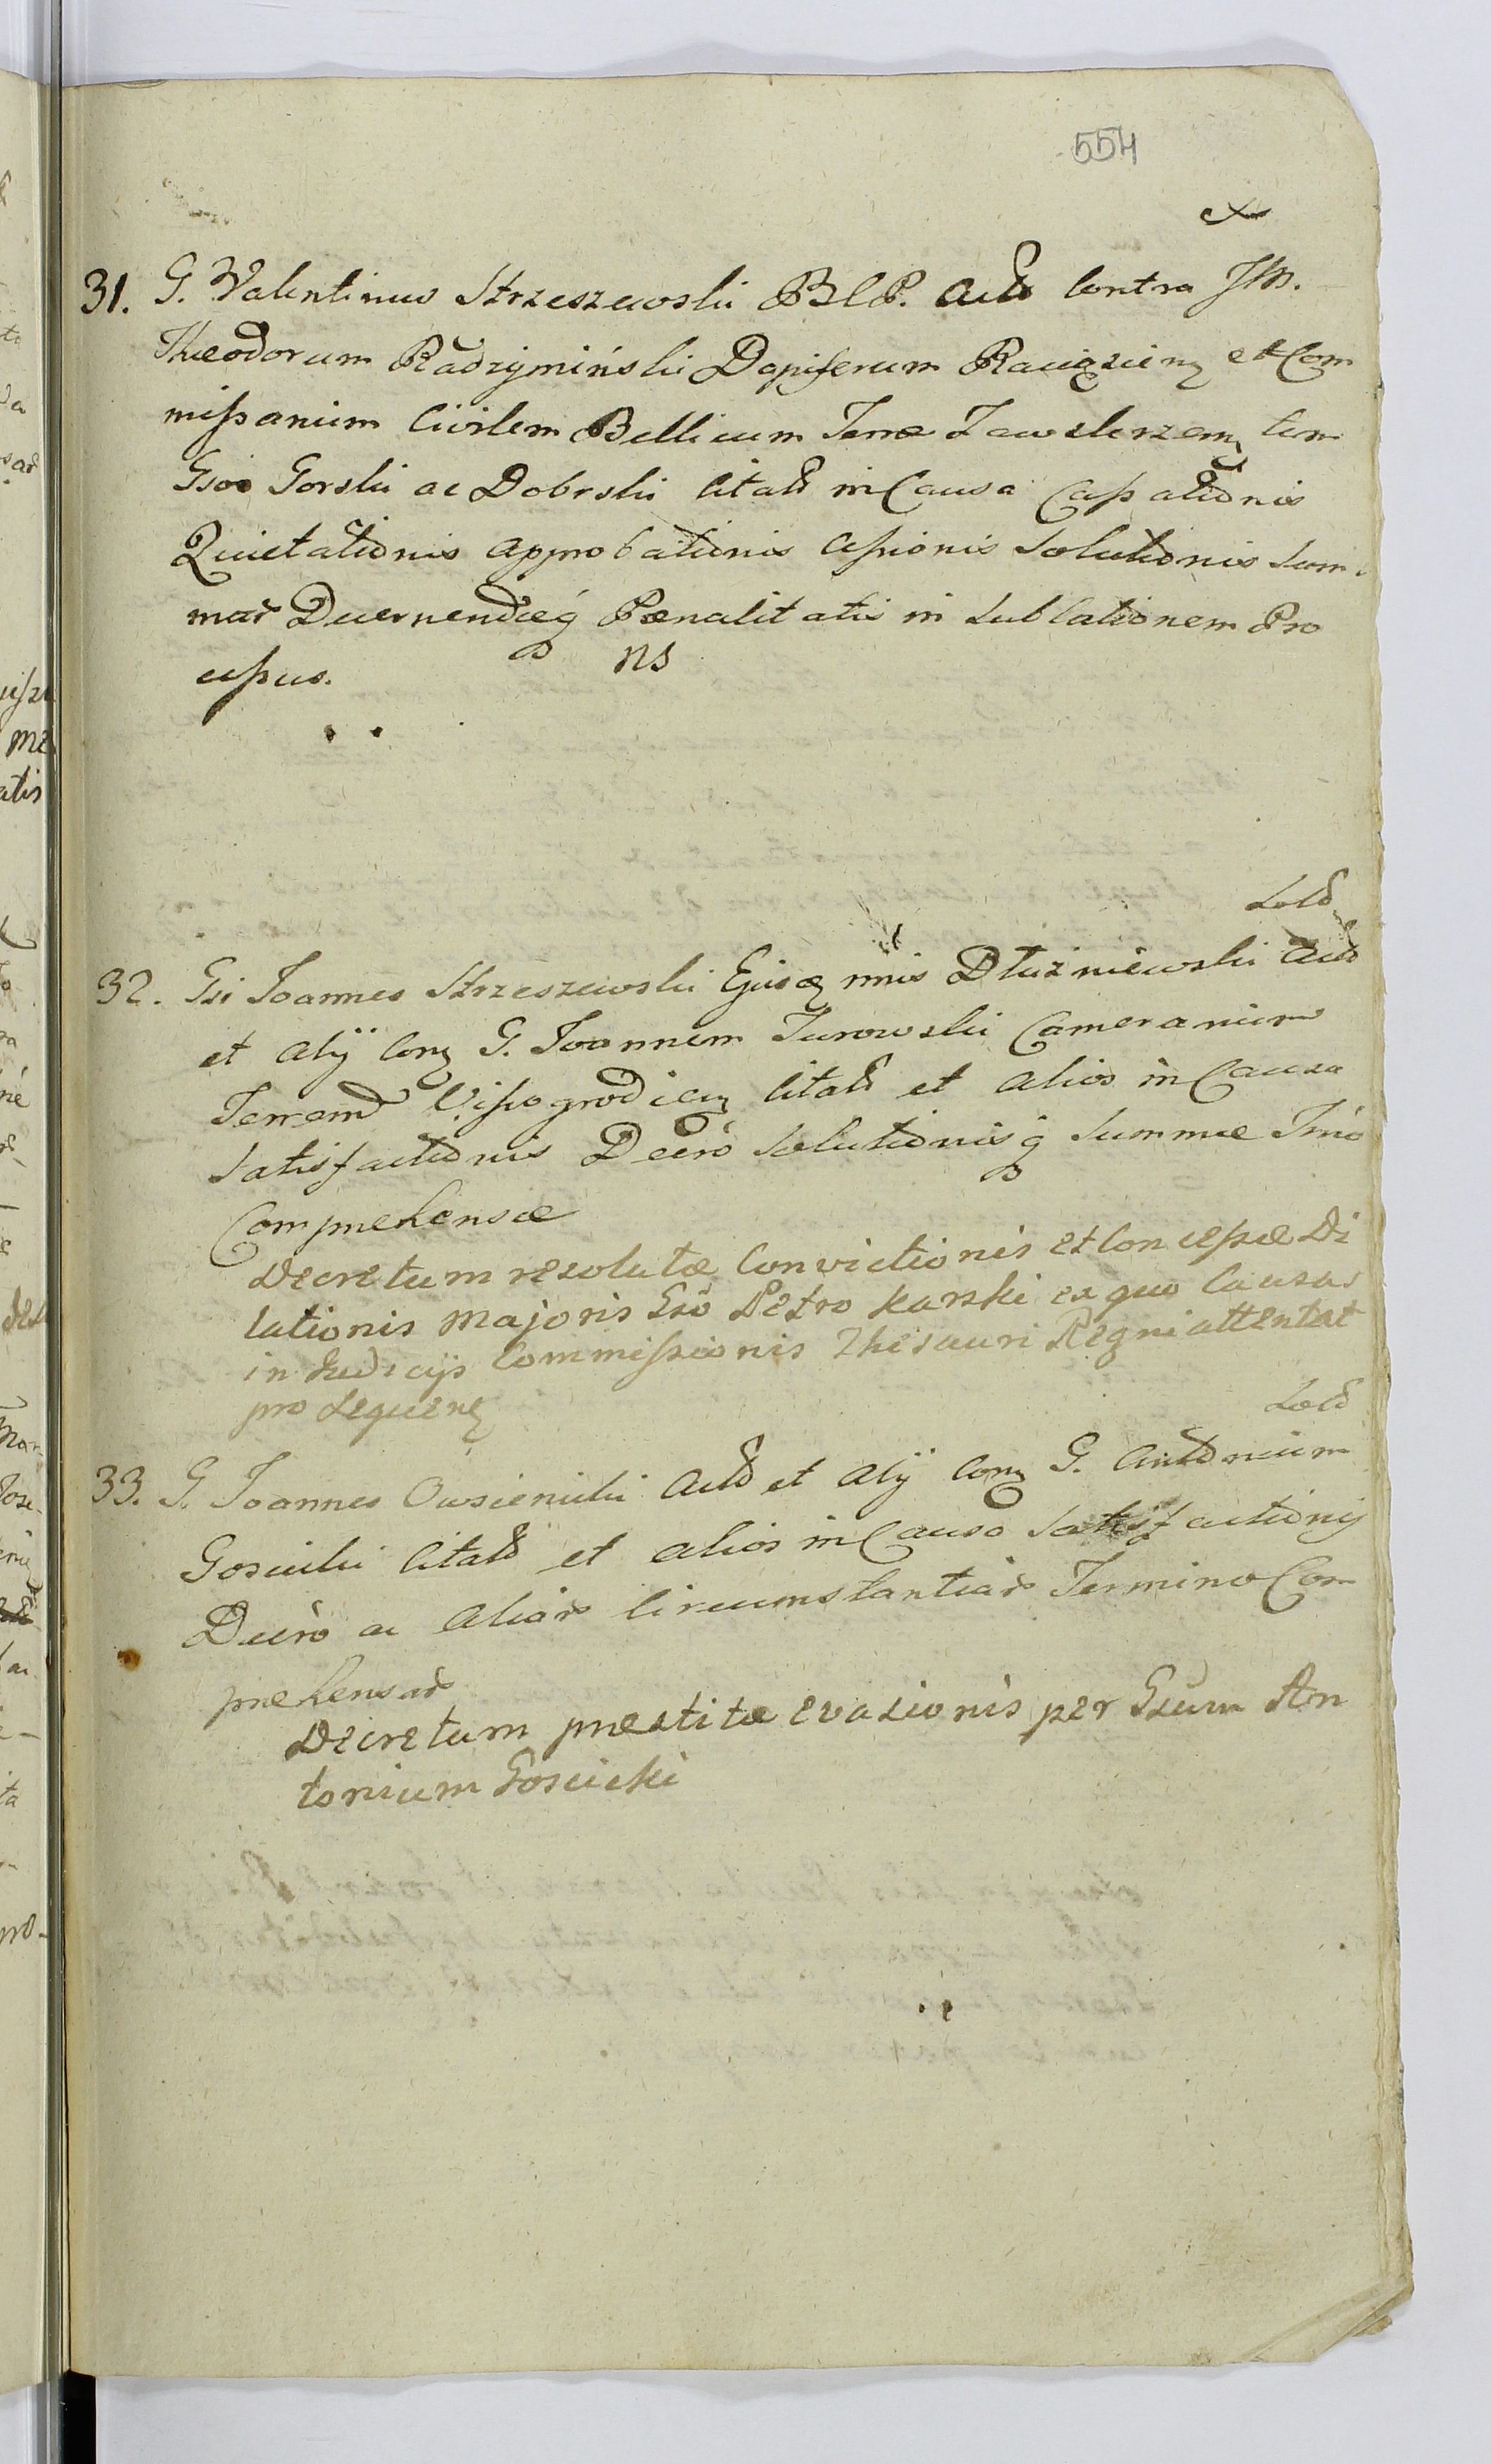 554
31. G. Valentinus Strzeszewski BCP. Actor Contra JM.
Theodorum Radzyminski Dapiferum Raciązien et Com
missarium Civilem Bellicum Terræ Zawskrzen tum
Gsos Gorski ac Dobrski Citatos in Causa Cassationis
Quietationis approbationis Cessionis Solutionis Sum
mar Decernendæq Pœnalitatis in Sublationem Pro
cessus. ns
Sold
32. Gsi Joannes Strzeszewski Ejusq nnis Dłużniewski Act
et alij Con G. Joannem Jurowski Camerarium
Terrena Wissogrodien Citatum et alios in Causa
Satisfactionis Decreto Solutionisq Summæ Termino
Comprehensæ
Decretum resolutæ Convictionis et Concessæ Di
lationis Majoris Gso Petro Karski ex quo Causas
in Judicijs Commissionis Thesauri Regni attentat
pro Sequen
Sold
33. G. Joannes Owsienicki Act et alij Con G. Antonium
Goscicki Citatum et alios in Causa Satisfactionis
Decreto ac aliar Circumstantiar Termino Com
prehensar
Decretum præstitæ evasionis per Gsum An
tonium Goscicki